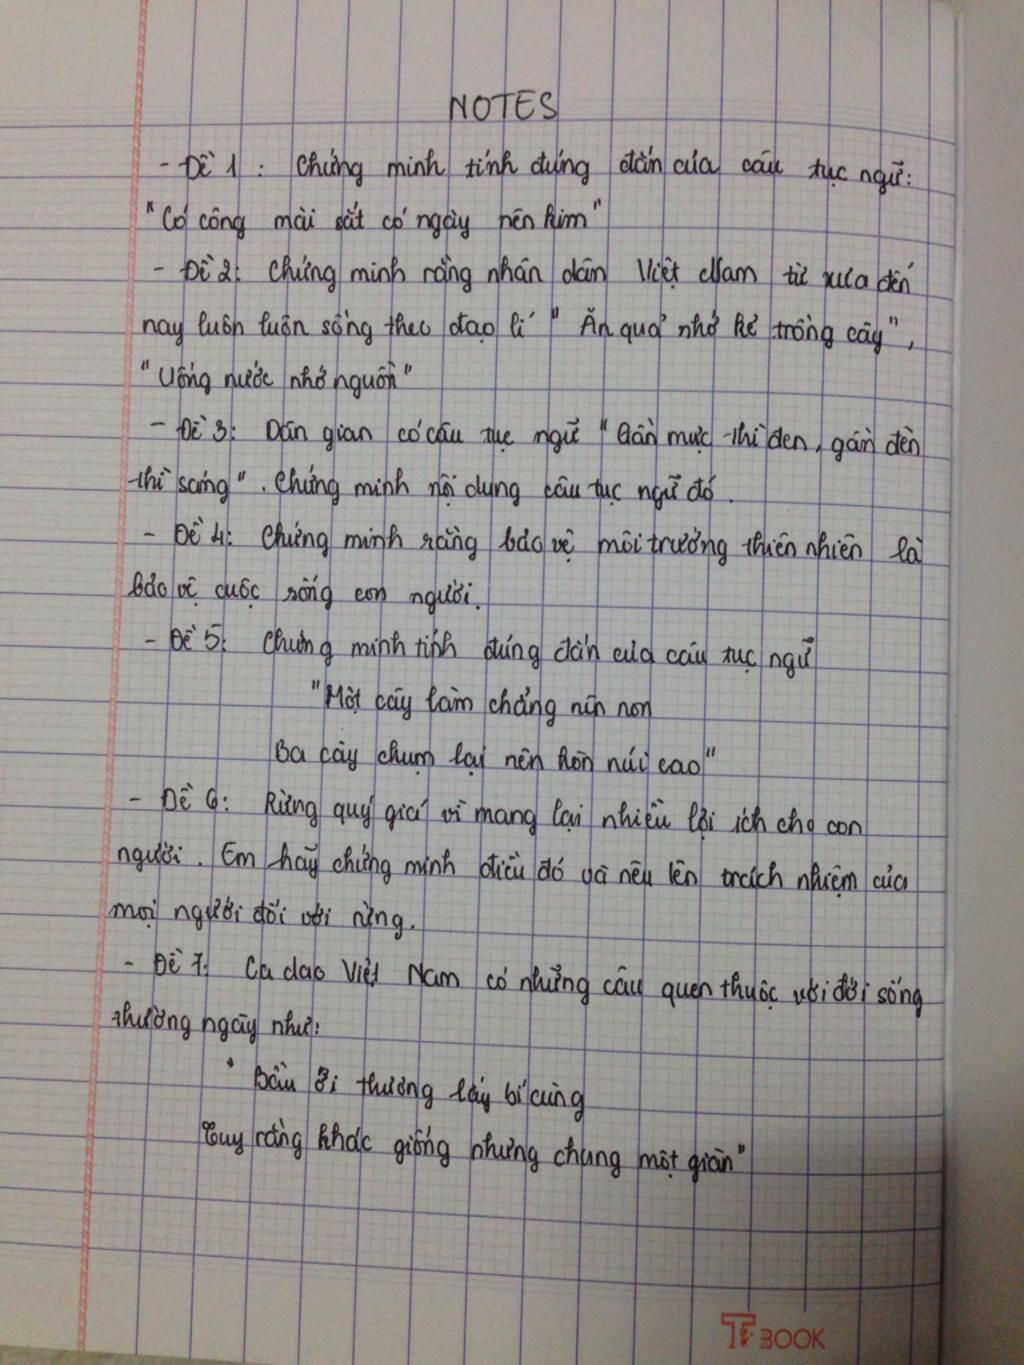 NOTES
- Đề 1 : Chứng minh tính đúng đắn của câu tục ngữ:
"Có công mài sắt có ngày nên kim"
- Đề 2: Chứng minh rằng nhân dân Việt Nam từ xưa đến
nay luôn luôn sống theo đạo lí " Ăn quả nhớ kẻ trồng cây",
"Uống nước nhớ nguồn"
- Đề 3: Dân gian có câu tục ngữ "Gần mực thì đen, gần đèn
thì sáng". Chứng minh nội dung câu tục ngữ đó.
- Đề 4: Chứng minh rằng bảo vệ môi trường thiên nhiên là
bảo vệ cuộc sống con người.
- Đề 5: Chứng minh tính đúng đắn của câu tục ngữ
"Một cây làm chẳng nên non
Ba cây chụm lại nên hòn núi cao"
- Đề 6: Rừng quý giá vì mang lại nhiều lợi ích cho con
người. Em hãy chứng minh điều đó và nêu lên trách nhiệm của
mọi người đối với rừng.
- Đề 7: Ca dao Việt Nam có những câu quen thuộc với đời sống
thường ngày như:
" Bầu ơi thương lấy bí cùng
Tuy rằng khác giống nhưng chung một giàn"
BOOK